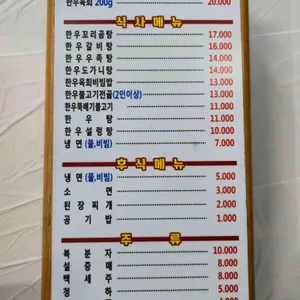 한우육회 200g 20.000
식사메뉴
한우꼬리곰탕 17.000
한우갈비탕 16.000
한우우족탕 14.000
한우도가니탕 14.000
한우육회비빔밥 13.000
한우불고기전골(2인이상) 13.000
한우뚝배기불고기 11.000
한우탕 11.000
한우설렁탕 10.000
냉면(물,비빔) 7.000
후식메뉴
냉면(물,비빔) 5.000
소면 3.000
된장찌개 2.000
공기밥 1.000
주류
복분자 10.000
설중매 8.000
백세주 8.000
청하 5.000